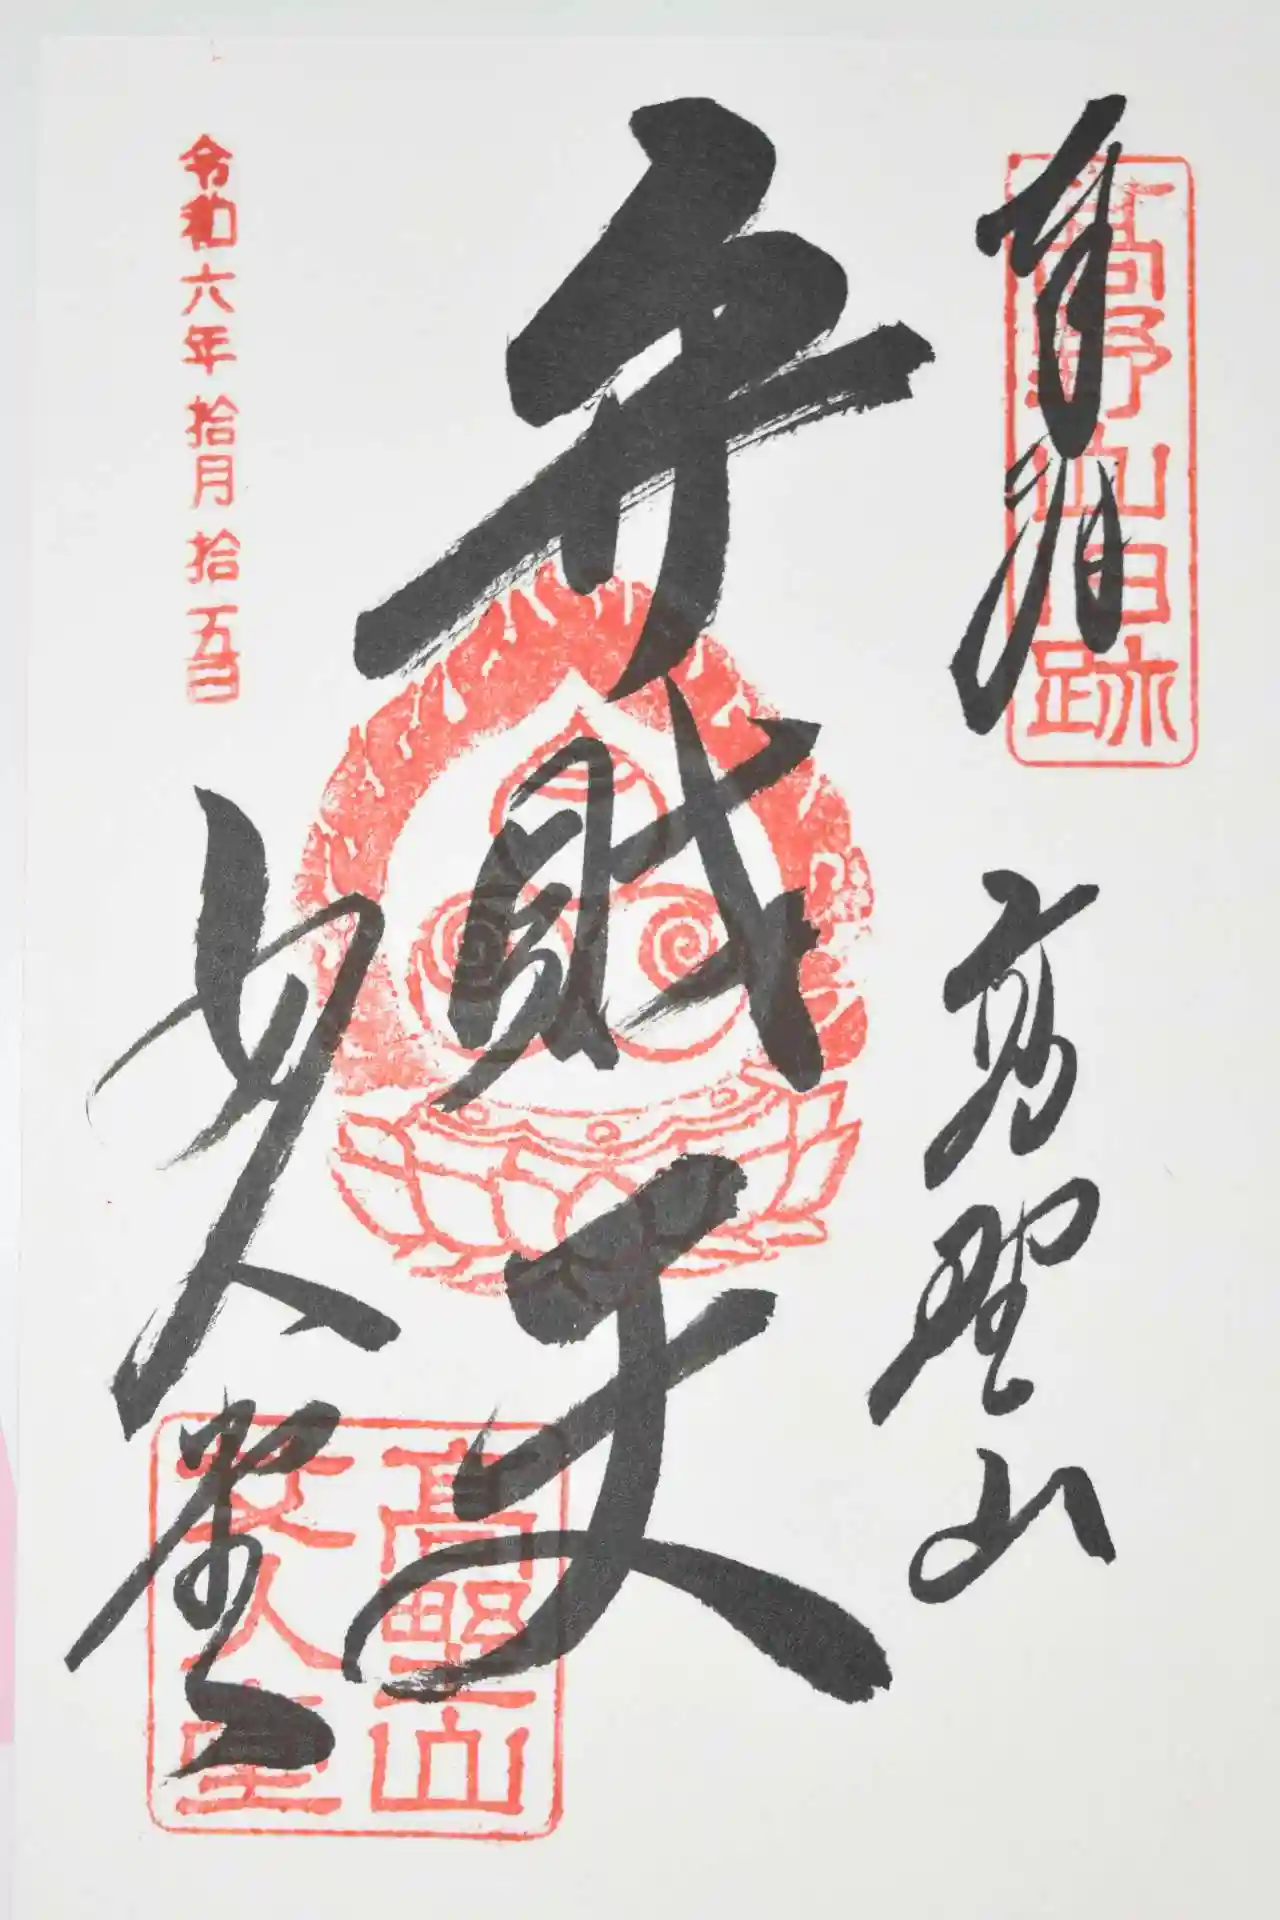 奉拝
高野山旧跡
高野山
弁財天
女人堂
高野山
女人堂
令和六年拾月拾五日